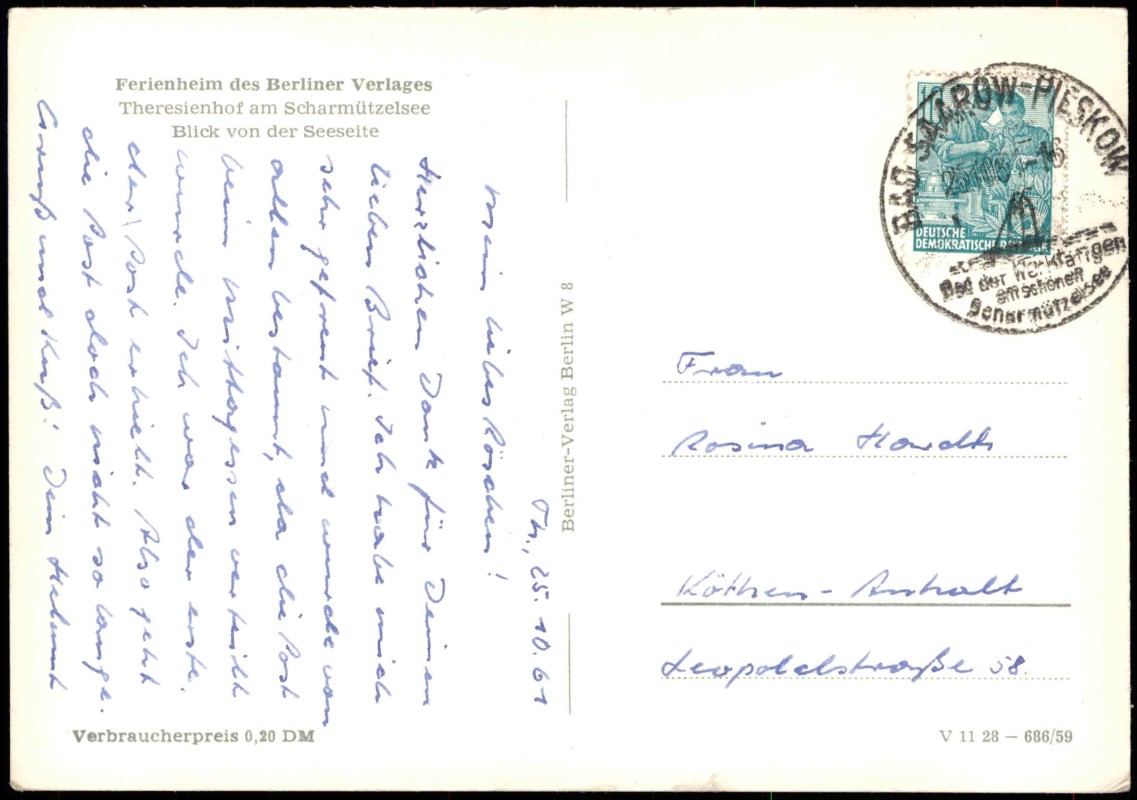 Ferienheim des Berliner Verlages
Theresienhof am Scharmützelsee
Blick von der Seeseite
Th., 25.10.61
Mein liebes Röschen!
Herzlichen Dank für Deinen
lieben Brief. Ich habe mich
sehr gefreut und wurde von
allen bestaunt, da die Post
beim Mittagessen verteilt
wurde. Ich war der erste,
der Post erhielt. Also geht
die Post doch nicht so lange.
Gruß und Kuß! Dein Helmut
Verbraucherpreis 0,20 DM
Berliner-Verlag Berlin W 8
10
DEUTSCHE
DEMOKRATISCHE
BAD SAAROW-PIESKOW
Bad der Werktätigen
am schönen
Scharmützelsee
Frau
Rosina
Köthen-Anhalt
Leopoldstraße 58.
V 11 28 — 686/59